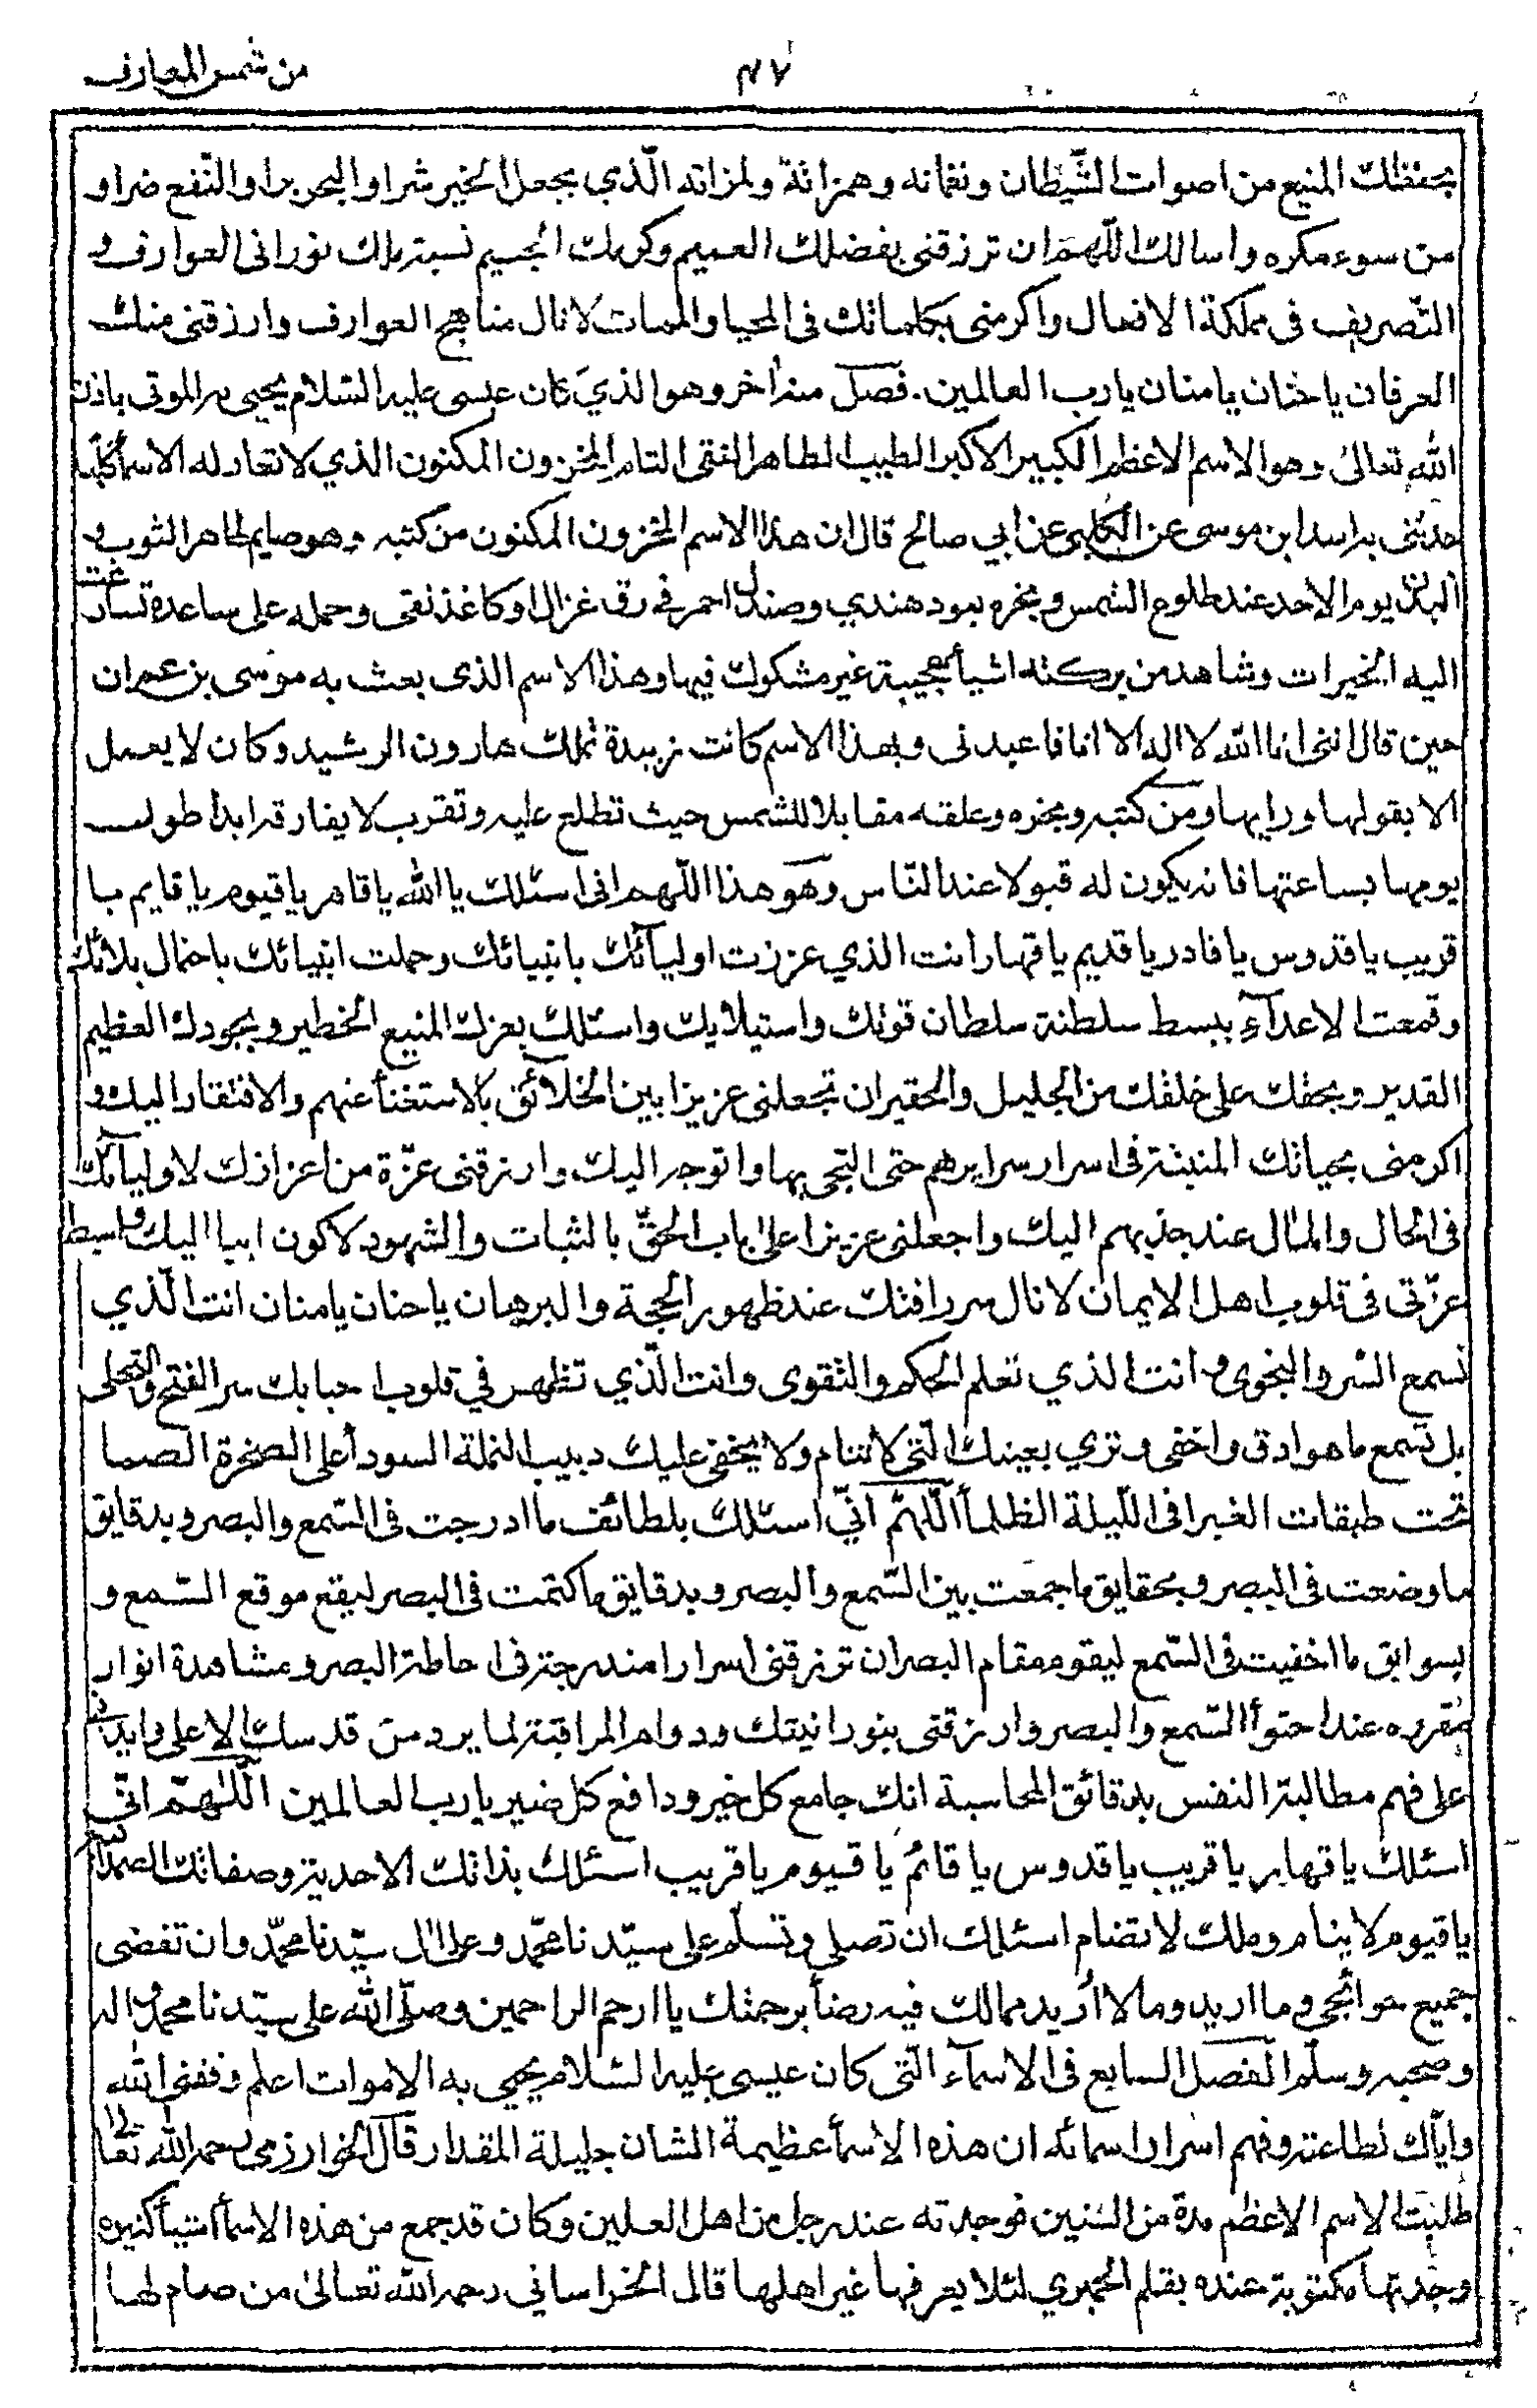 من شمس المعارف
٤٧
بحفظك المنيع من اصوات الشّيطان ونغماته وهمزاته ولمزاته الّذي يجعل الخير شرا والبحر برا والنّفع ضرا و
من سوء مكره واسالك اللّهم ان ترزقنى بفضلك العميم وكرمك الجسيم نسبة بك نورانى العوارف و
التّصريف فى مملكة الافعال واكرمنى بكلماتك فى المحيا والممات لانال مناهج العوارف وارزقنى منك
العرفان يا حنان يا منان يا رب العالمين . فصل منه اخر وهو الذي كان عيسى عليه السّلام يحيى به الموتى باذن
الله تعالى وهو الاسم الاعظم الكبير الاكبر الطيب الطاهر النقى التام المخزون المكنون الذي لا تعادله الاسماء كلها
حدثنى راسد ابن موسى عن الكلبى عن ابي صالح قال ان هذا الاسم المخزون المكنون من كتبه وهو صايم طاهر الثوب و
البدن يوم الاحد عند طلوع الشمس وبخره بعود هندي وصندل احمر فى رق غزال او كاغذ نقى وحمله على ساعده تسارعت
اليه الخيرات وشاهد من بركته اشيأ عجيبة غير مشكوك فيها وهذا الاسم الذى بعث به موسى بن عمران
حين قال اننى انا الله لا اله الا انا فاعبدنى وبهذا الاسم كانت زبيدة تملك هارون الرشيد وكان لا يعمل
الا بقولها ورايها ومن كتبه وبخره وعلقه مقابلا للشمس حيث تطلع عليه وتقرب لا يفارقه ابدا طول
يومها بساعتها فانه يكون له قبولا عند النّاس وهو هذا اللّهم انى اسئلك يا الله يا قاهر يا قيوم يا قايم يا
قريب يا قدوس يا قادر يا قديم يا قهار انت الذي عززت اوليآئك بانبيائك وحملت انبيائك باحتمال بلائك
وقمعت الاعدآء ببسط سلطنة سلطان قوتك واستيلايك واسئلك بعزك المنيع الخطير وبجودك العظيم
القدير وبحقك على خلقك من الجليل والحقير ان تجعلنى عزيزا بين الخلائق بالاستغنأ عنهم والافتقار اليك و
اكرمنى بحمياتك المنبثة فى اسرار سرايرهم حتى التجى بها واتوجه اليك وارزقنى عزّة من اعزازك لاوليآئك
فى الحال والمآل عند جذبهم اليك واجعلنى عزيزا على باب الحقّ بالثبات والشهود لاكون ايبا اليك وابسط
عزّتى فى قلوب اهل الايمان لانال سر رافتك عند ظهور الحجة والبرهان يا حنان يا منان انت الّذي
تسمع السّر والنجوى وانت الذي تعلم الحكم والتقوى وانت الّذي تظهر في قلوب احبابك سر الفتح والتجلى
بل تسمع ما هو ادق واخفى وترى بعينك الّتى لا تنام ولا يخفى عليك دبيب النملة السودأ على الصخرة الصما
تحت طبقات الغبرا فى اللّيلة الظلمأ اللّهمّ انّي اسئلك بلطائف ما ادرجت فى السّمع والبصر وبدقايق
ما وضعت فى البصر وبحقايق ما جمعت بين السّمع والبصر وبدقايق ما كتمت فى البصر ليقع موقع السّمع و
بسوابق ما اخفيت فى السّمع ليقوم مقام البصر ان ترزقنى اسرارا مندرجة فى احاطة البصر ومشاهدة انوار
مقرره عند احتوأ السّمع والبصر وارزقنى بنورانيتك ودوام المراقبة لما يرد من قدسك الاعلى وايدنى
على فهم مطالبة النفس بدقائق المحاسبة انك جامع كل خير ودافع كل ضير يا رب العالمين اللّهمّ انّى
اسئلك يا قهار يا قريب يا قدوس يا قائم يا قيوم يا قريب اسئلك بذاتك الاحدية وصفاتك الصمدانية
يا قيوم لا ينام وملك لا تضام اسئلك ان تصلى وتسلّم على سيّدنا محمّد وعلى ال سيّدنا محمّد وان تقضى
جميع حوائجى وما اريد وما لا اريد مما لك فيه رضأ برحمتك يا ارحم الراحمين وصلّى الله على سيّدنا محمد واله
وصحبه وسلّم الفصل السابع فى الاسمآء الّتى كان عيسى عليه السّلام يحيى به الاموات اعلم وفقنى الله
وايّاك لطاعته وفهم اسرار اسمائه ان هذه الاسمأ عظيمة الشان جليلة المقدار قال الخوارزمى رحمه الله تعالى
طلبت الاسم الاعظم مدة من السّنين فوجدته عند رجل من اهل العلين وكان قد جمع من هذه الاسمأ اشيأ كثيره
وجدتها مكتوبة عنده بقلم الحميري لئلا يعرفها غير اهلها قال الخراساني رحمه الله تعالى من صام لها